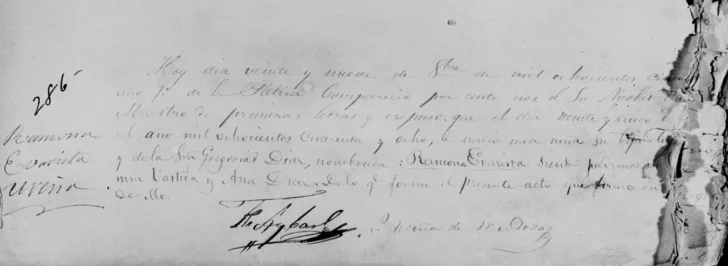 286
Ramona
Evarista
Ureña
Hoy dia veinte y nueve de 8bre de mil ochocientos
año 7º de la Patria Comparecio por ante nos el Sr. Nicolas
Maestro de primeras letras y expuso: que el dia veinte y cinco
el año mil ochocientos cuarenta y ocho, nacio una niña su
y de la Sra Gregorias Diaz, nombrada: Ramona Evarista siend padrinos
y Ana Diaz. De lo qe. formo el presente acto que firma con
de
Ureña de Mendoza